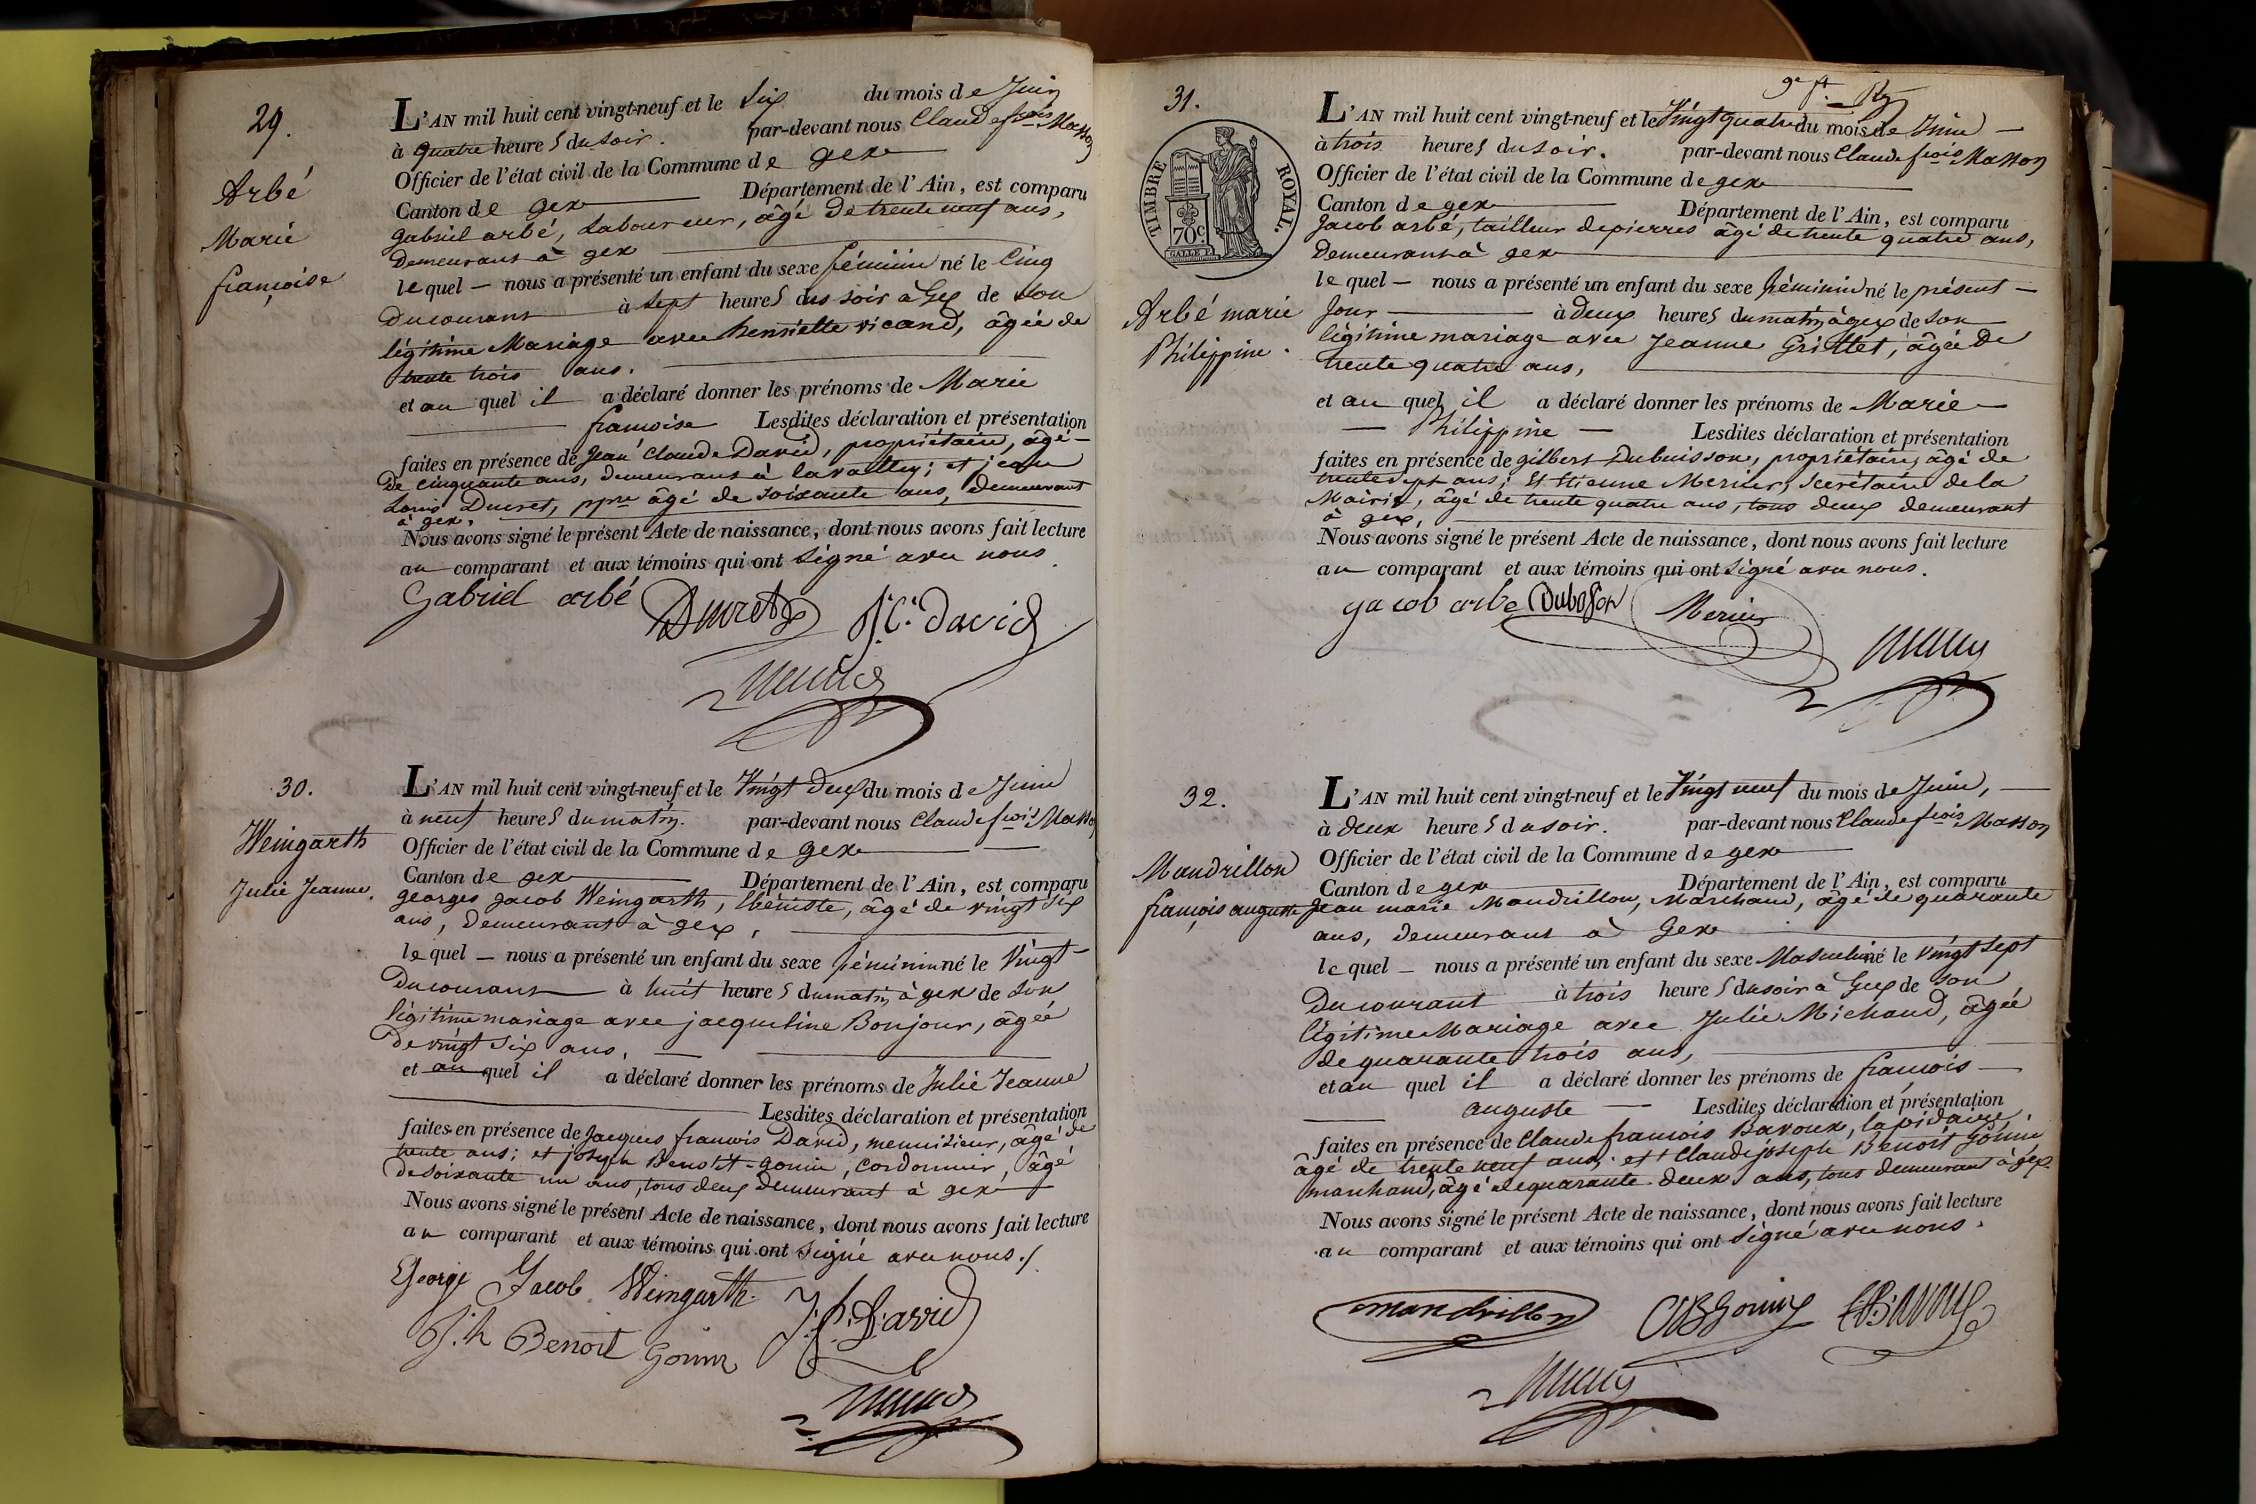 29.
Arbé
Marie
françoise
L'AN mil huit cent vingt-neuf et le Six du mois de Juin
à quatre heures du soir. par-devant nous Claude frois Masson
Officier de l'état civil de la Commune de gex
Canton de gex Département de l'Ain, est comparu
gabriel arbé, Laboureur, âgé de trente neuf ans,
demeurant à gex
lequel — nous a présenté un enfant du sexe féminin né le Cinq
du courant à sept heures du soir à Gex de son
légitime Mariage avec henriette vicand, âgée de
trente trois ans.
et au quel il a déclaré donner les prénoms de Marie
françoise Lesdites déclaration et présentation
faites en présence de Jean Claude David, propriétaire, âgé
de cinquante ans, demeurant à lavattey; et jean
Louis Ducret, ppre âgé de soixante ans, demeurant
à gex.
Nous avons signé le présent Acte de naissance, dont nous avons fait lecture
au comparant et aux témoins qui ont signé avec nous.
Gabriel arbé Ducret J. C. David
30.
Weingarth
Julie Jeanne.
L'AN mil huit cent vingt-neuf et le Vingt deux du mois de Juin
à neuf heures du matin. par-devant nous Claude frois Masson
Officier de l'état civil de la Commune de gex
Canton de gex Département de l'Ain, est comparu
georges jacob Weingarth, Ebéniste, âgé de vingt six
ans, demeurant à gex,
lequel — nous a présenté un enfant du sexe féminin né le Vingt
du courant à huit heures du matin à gex de son
légitime mariage avec jacqueline Bonjour, âgée
de vingt six ans.
et au quel il a déclaré donner les prénoms de Julie Jeanne
Lesdites déclaration et présentation
faites en présence de jacques françois David, menuisier, âgé de
trente ans; et joseph Benoit-gonin, Cordonnier, âgé
de soixante un ans, tous deux demeurant à gex
Nous avons signé le présent Acte de naissance, dont nous avons fait lecture
au comparant et aux témoins qui ont signé avec nous./.
George Jacob Weingarth. J. f. David
J. h Benoit Gonin
31.
TIMBRE ROYAL.
70 c.
Arbé marie
Philippine.
L'AN mil huit cent vingt-neuf et le Vingt quatre du mois de Juin —
à trois heures du soir. par-devant nous Claude frois Masson
Officier de l'état civil de la Commune de gex
Canton de gex Département de l'Ain, est comparu
Jacob arbé, tailleur de pierres âgé de trente quatre ans,
demeurant à gex
lequel — nous a présenté un enfant du sexe féminin né le présent —
Jour à deux heures du matin à gex de son
légitime mariage avec Jeanne Grillet, âgée de
trente quatre ans,
et au quel il a déclaré donner les prénoms de Marie —
— Philippine — Lesdites déclaration et présentation
faites en présence de gilbert Dubuisson, propriétaire, âgé de
trente sept ans; et Etienne Merier, Secrétaire de la
Mairie, âgé de trente quatre ans, tous deux demeurant
à gex,
Nous avons signé le présent Acte de naissance, dont nous avons fait lecture
au comparant et aux témoins qui ont signé avec nous.
jacob arbe Duboson Merier
32.
Mandrillon
françois auguste
L'AN mil huit cent vingt-neuf et le Vingt neuf du mois de Juin, —
à deux heures du soir. par-devant nous Claude frois Masson
Officier de l'état civil de la Commune de gex
Canton de gex Département de l'Ain, est comparu
Jean marie Mandrillon, Marchand, âgé de quarante
ans, demeurant à Gex
lequel — nous a présenté un enfant du sexe Masculin né le vingt sept
du courant à trois heures du soir à Gex de son
légitime Mariage avec Julie Michaud, âgée
de quarante trois ans,
et au quel il a déclaré donner les prénoms de françois —
auguste — Lesdites déclaration et présentation
faites en présence de Claude françois Bavoux, lapidaire,
âgé de trente neuf ans. et Claude joseph Benoit Gonin
marchand, âgé de quarante deux ans, tous demeurant à gex.
Nous avons signé le présent Acte de naissance, dont nous avons fait lecture
au comparant et aux témoins qui ont signé avec nous.
mandrillon CJBGonin Bavoux